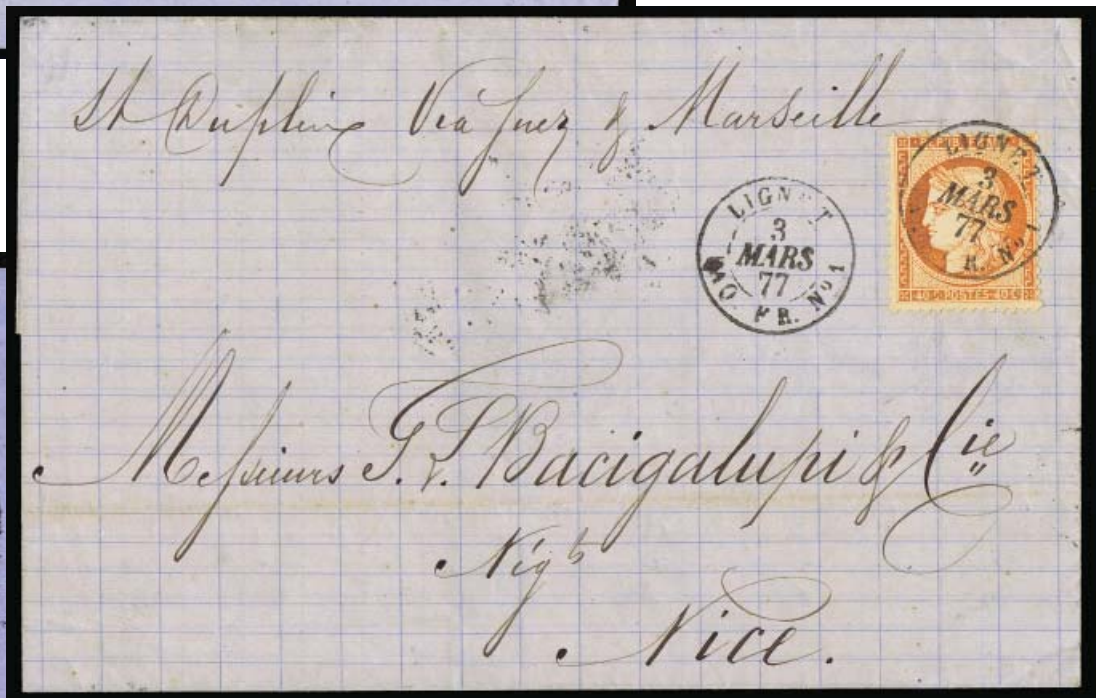 St Dupleix Via Suez & Marseille
LIGNE T
3
MARS
77
PAQ. FR. No 1
LIGNE T
3
MARS
77
R. No 1
40 C. POSTES 40 C.
Messieurs Bacigalupi & Cie
Négts
Nice.